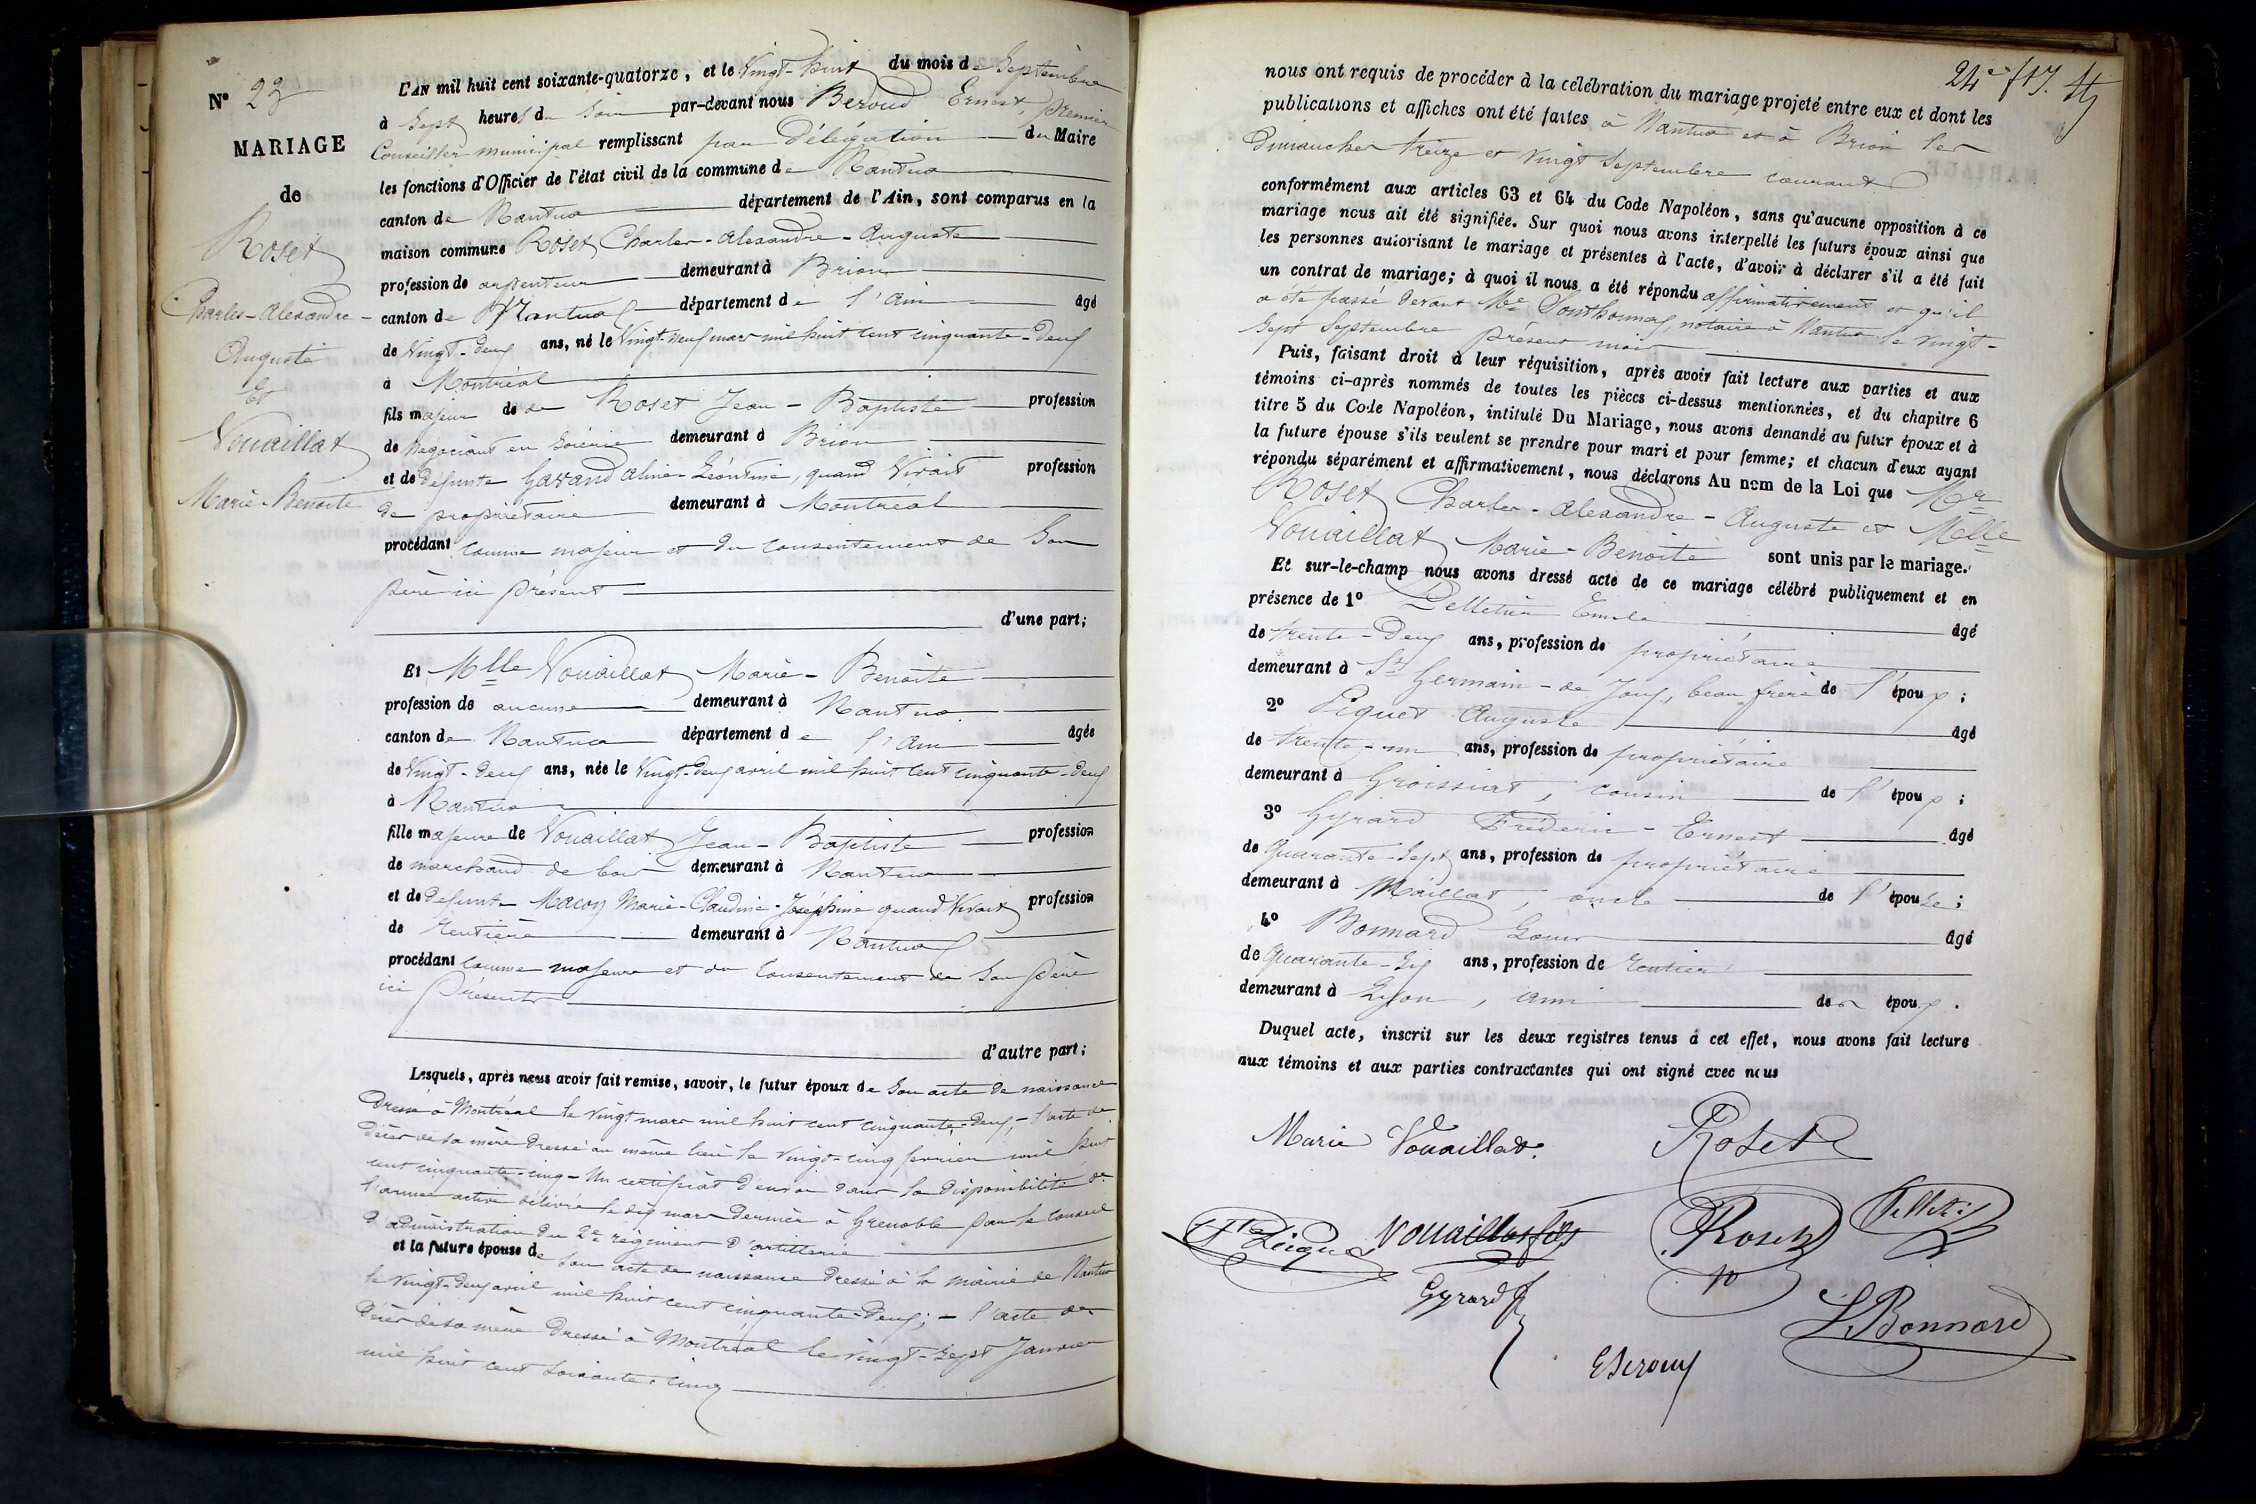 N° 23
MARIAGE
de
Roset
Charles-Alexandre-
Auguste
Et
Vouaillat
Marie-Benoite
L'AN mil huit cent soixante-quatorze, et le Vingt-huit du mois de Septembre
à Sept heures du Soir par-devant nous Beroud Ernest, premier
Conseiller municipal remplissant par Délégation du Maire
les fonctions d'Officier de l'état civil de la commune de Nantua
canton de Nantua département de l'Ain, sont comparus en la
maison commune Roset Charles-Alexandre-Auguste
profession de arpenteur demeurant à Brion
canton de Nantua département de l'Ain âgé
de Vingt-deux ans, né le Vingt-neuf mars mil huit cent cinquante-deux
à Montréal
fils majeur de de Roset Jean-Baptiste profession
de Négociant en Soierie demeurant à Brion
et de défunte Gavand Aline-Léontine, quand Vivait profession
de propriétaire demeurant à Montréal
procédant comme majeur et du consentement de Son
père ici présent
d'une part;
Et Mlle Vouaillat Marie-Benoite
profession de aucune demeurant à Nantua
canton de Nantua département de l'Ain âgée
de Vingt-deux ans, née le Vingt-deux avril mil huit cent cinquante-deux
à Nantua
fille majeure de Vouaillat Jean-Baptiste profession
de marchand de bois demeurant à Nantua
et de défunte Macon Marie-Claudine-Joséphine quand Vivait profession
de rentière demeurant à Nantua
procédant comme majeure et du Consentement de Son père
ici présent
d'autre part;
Lesquels, après nous avoir fait remise, savoir, le futur époux de Son acte de naissance
dressé à Montréal le Vingt mars mil huit cent cinquante-deux, - l'acte de
décès de sa mère dressé au même lieu le Vingt-cinq février mil huit
cent cinquante-cinq - Un certificat d'envoi dans la disponibilité de
l'armée active délivré le dix mars dernier à Grenoble par le Conseil
d'administration du 2e régiment d'artillerie
et la future épouse de Son acte de naissance dressé à la mairie de Nantua
le Vingt-deux avril mil huit cent cinquante-deux; - l'acte de
décès de sa mère dressé à Montréal le vingt-Sept Janvier
mil huit cent Soixante-cinq
nous ont requis de procéder à la célébration du mariage projeté entre eux et dont les
publications et affiches ont été faites à Nantua et à Brion les
dimanches treize et vingt Septembre courant
conformément aux articles 63 et 64 du Code Napoléon, sans qu'aucune opposition à ce
mariage nous ait été signifiée. Sur quoi nous avons interpellé les futurs époux ainsi que
les personnes autorisant le mariage et présentes à l'acte, d'avoir à déclarer s'il a été fait
un contrat de mariage; à quoi il nous a été répondu affirmativement et qu'il
a été passé devant Me Sonthonnax, notaire à Nantua le Vingt-
Sept Septembre présent mois
Puis, faisant droit à leur réquisition, après avoir fait lecture aux parties et aux
témoins ci-après nommés de toutes les pièces ci-dessus mentionnées, et du chapitre 6
titre 5 du Code Napoléon, intitulé Du Mariage, nous avons demandé au futur époux et à
la future épouse s'ils veulent se prendre pour mari et pour femme; et chacun d'eux ayant
répondu séparément et affirmativement, nous déclarons Au nom de la Loi que Mr
Roset Charles-Alexandre-Auguste et Melle
Vouaillat Marie-Benoite sont unis par le mariage.
Et sur-le-champ nous avons dressé acte de ce mariage célébré publiquement et en
présence de 1° Pelletier Emile âgé
de trente-Deux ans, profession de propriétaire
demeurant à St Germain-de Joux, beau-frère de l'époux;
2° Piquet Auguste âgé
de trente-un ans, profession de propriétaire
demeurant à Groissiat, cousin de l'époux;
3° Gyrard Frédéric-Ernest âgé
de Quarante-Sept ans, profession de propriétaire
demeurant à Maillat, oncle de l'épouse;
4° Bonnard Louis âgé
de Quarante-Six ans, profession de rentier
demeurant à Lyon, ami des époux.
Duquel acte, inscrit sur les deux registres tenus à cet effet, nous avons fait lecture
aux témoins et aux parties contractantes qui ont signé avec nous
Marie Vouaillat. Roset
Piquet Vouaillat fils Roset Pelletier
Gyrard
L. Bonnard
E Beroud